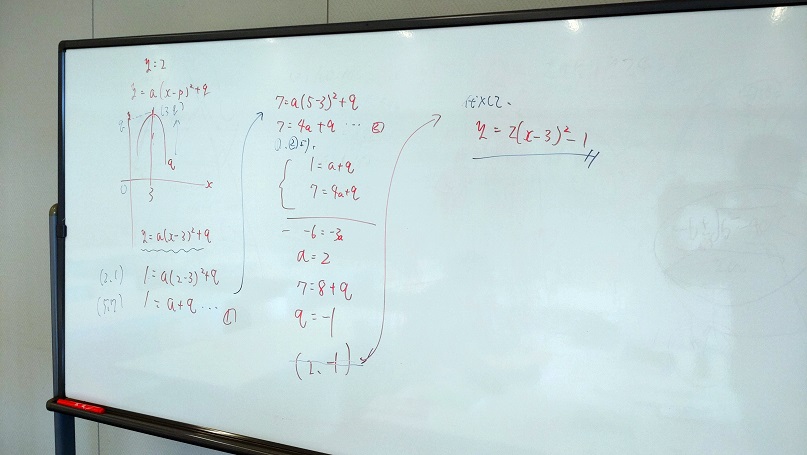 y = 2
y = a(x-p)²+q
q
0
3
x
y = a(x-3)²+q
(2.1) 1 = a(2-3)²+q
(5.7) 1 = a+q … ①
7 = a(5-3)²+q
7 = 4a+q … ②
①.②より.
1 = a+q
7 = 4a+q
- -6 = -3a
a = 2
7 = 8+q
q = -1
(2. -1)
代入して.
y = 2(x-3)²-1